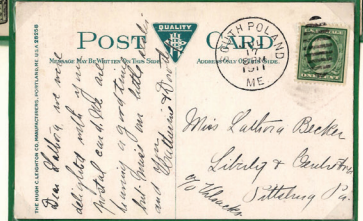 THE HUGH C. LEIGHTON CO., MANUFACTURERS, PORTLAND, ME. U.S.A. 28258
POST CARD
QUALITY
MESSAGE MAY BE WRITTEN ON THIS SIDE
ADDRESS ONLY ON THIS SIDE
SOUTH POLAND
17
1911
ME
ONE CENT
Dear we were
delighted with your
postal card. We are
having a good time
but miss our little
and you
Miss Becker
Liberty &
Pittsburg Pa.